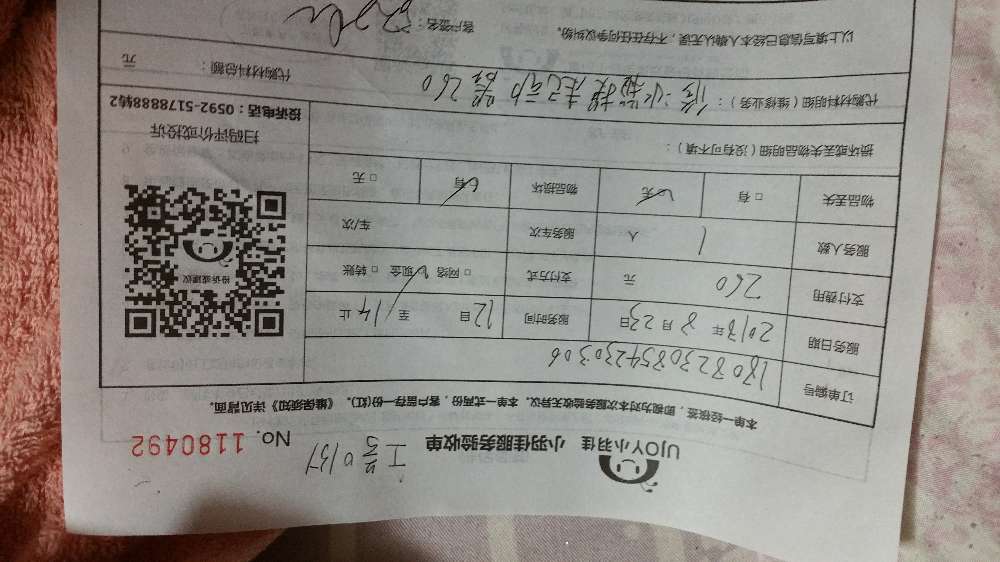 UJOY小羽佳 小羽佳服务验收单 工号0137 No. 1180492
本单一经核签，即视为对本次服务验收无异议。本单一式两份，客户留存一份(红)。《维保须知》详见背面。
订单编号 1808230854230306
服务日期 2018年8月23日 服务时间 12日 至 14止
支付费用 260 元 支付方式 □网络 现金 □转账
服务人数 1 人 服务车次 车/次
物品丢失 □有 无 物品损坏 有 □无
损坏或丢失物品明细（没有可不填）：
扫码评价或投诉
投诉电话：0592-5178888转2
投诉或建议
代购材料明细（维修业务） 260 代购材料总额： 元
以上填写信息已经本人确认无误，不存在任何争议纠纷。 客户签名：